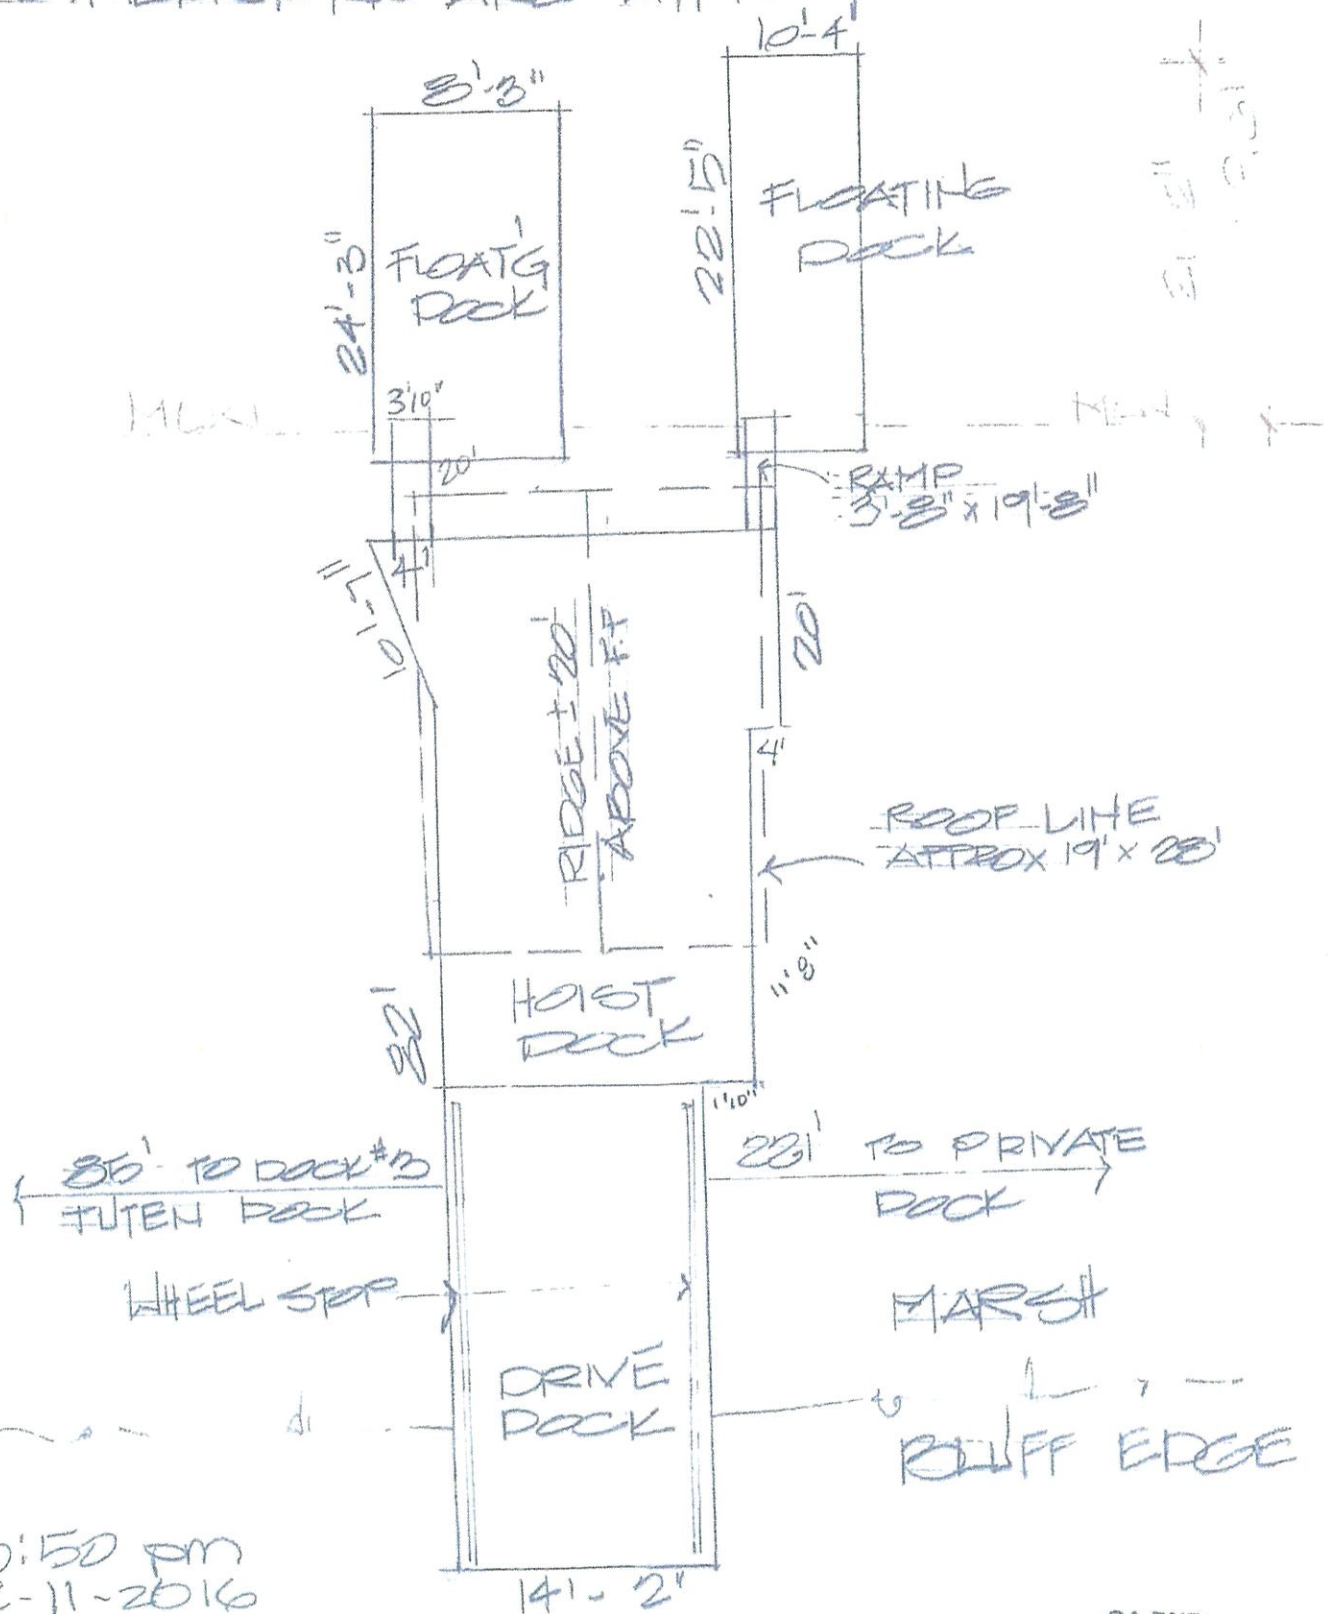 10'-4"
8'-3"
24'-3"
FLOAT'G
DOCK
22'-5"
FLOATING
DOCK
3'10"
20'
RAMP
3'-8" x 19'-8"
4'
10'-7"
RIDGE ± 20'
ABOVE F.F
20'
4'
ROOF LINE
APPROX 19' x 28'
11'8"
HOIST
DOCK
32'
1'10"
85' TO DOCK #3
TUTEN DOCK
221' TO PRIVATE
DOCK
WHEEL STOP
MARSH
DRIVE
DOCK
BLUFF EDGE
:50 pm
-11-2016
14'- 2"